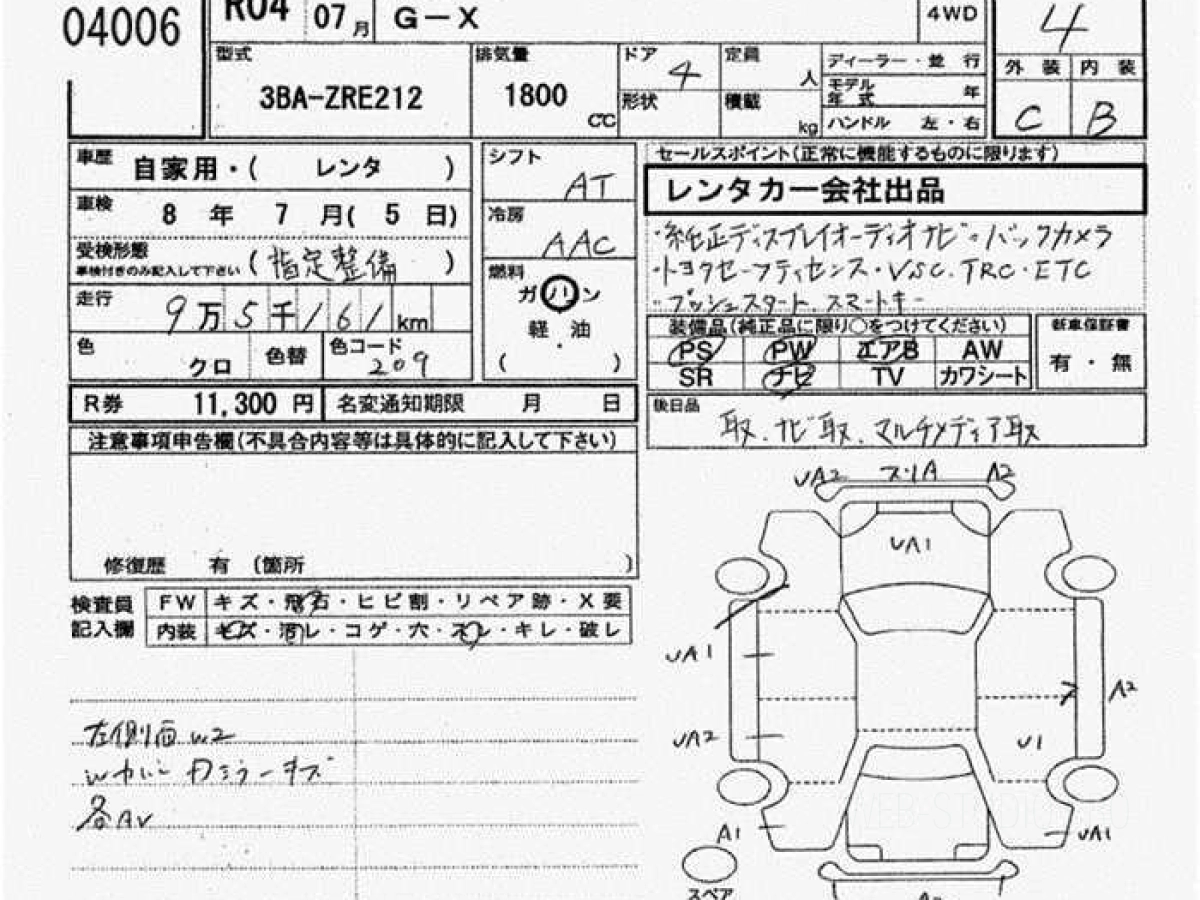 04006
R04 07月 G-X 4WD 4
型式 3BA-ZRE212 排気量 1800 CC ドア 4 定員 人 ディーラー・並行
形状 積載 kg モデル年式 年
ハンドル 左・右
外装 内装
C B
車歴 自家用・( レンタ )
シフト AT
セールスポイント(正常に機能するものに限ります)
レンタカー会社出品
車検 8年 7月( 5日)
冷房 AAC
・純正ディスプレイオーディオナビ・バックカメラ
受検形態 車検付きのみ記入して下さい (指定整備)
・トヨタセーフティセンス・VSC.TRC・ETC
・プッシュスタート.スマートキー
走行 9万5千161km
燃料 ガソリン
軽・油
( )
色 クロ 色替 色コード 209
装備品(純正品に限り○をつけてください)
PS PW エアB AW
SR ナビ TV カワシート
新車保証書
有・無
R券 11,300円 名変通知期限 月 日
後日品 取.ナビ取.マルチメディア取
注意事項申告欄(不具合内容等は具体的に記入して下さい)
修復歴 有 (箇所 )
検査員記入欄
FW キズ・飛石・ヒビ割・リペア跡・X要
内装 キズ・汚レ・コゲ・穴・スレ・キレ・破レ
左側面W2
各AV
UA2 スリA A2
UA1
UA1
A2
UA2
U1
A1
UA1
スペア